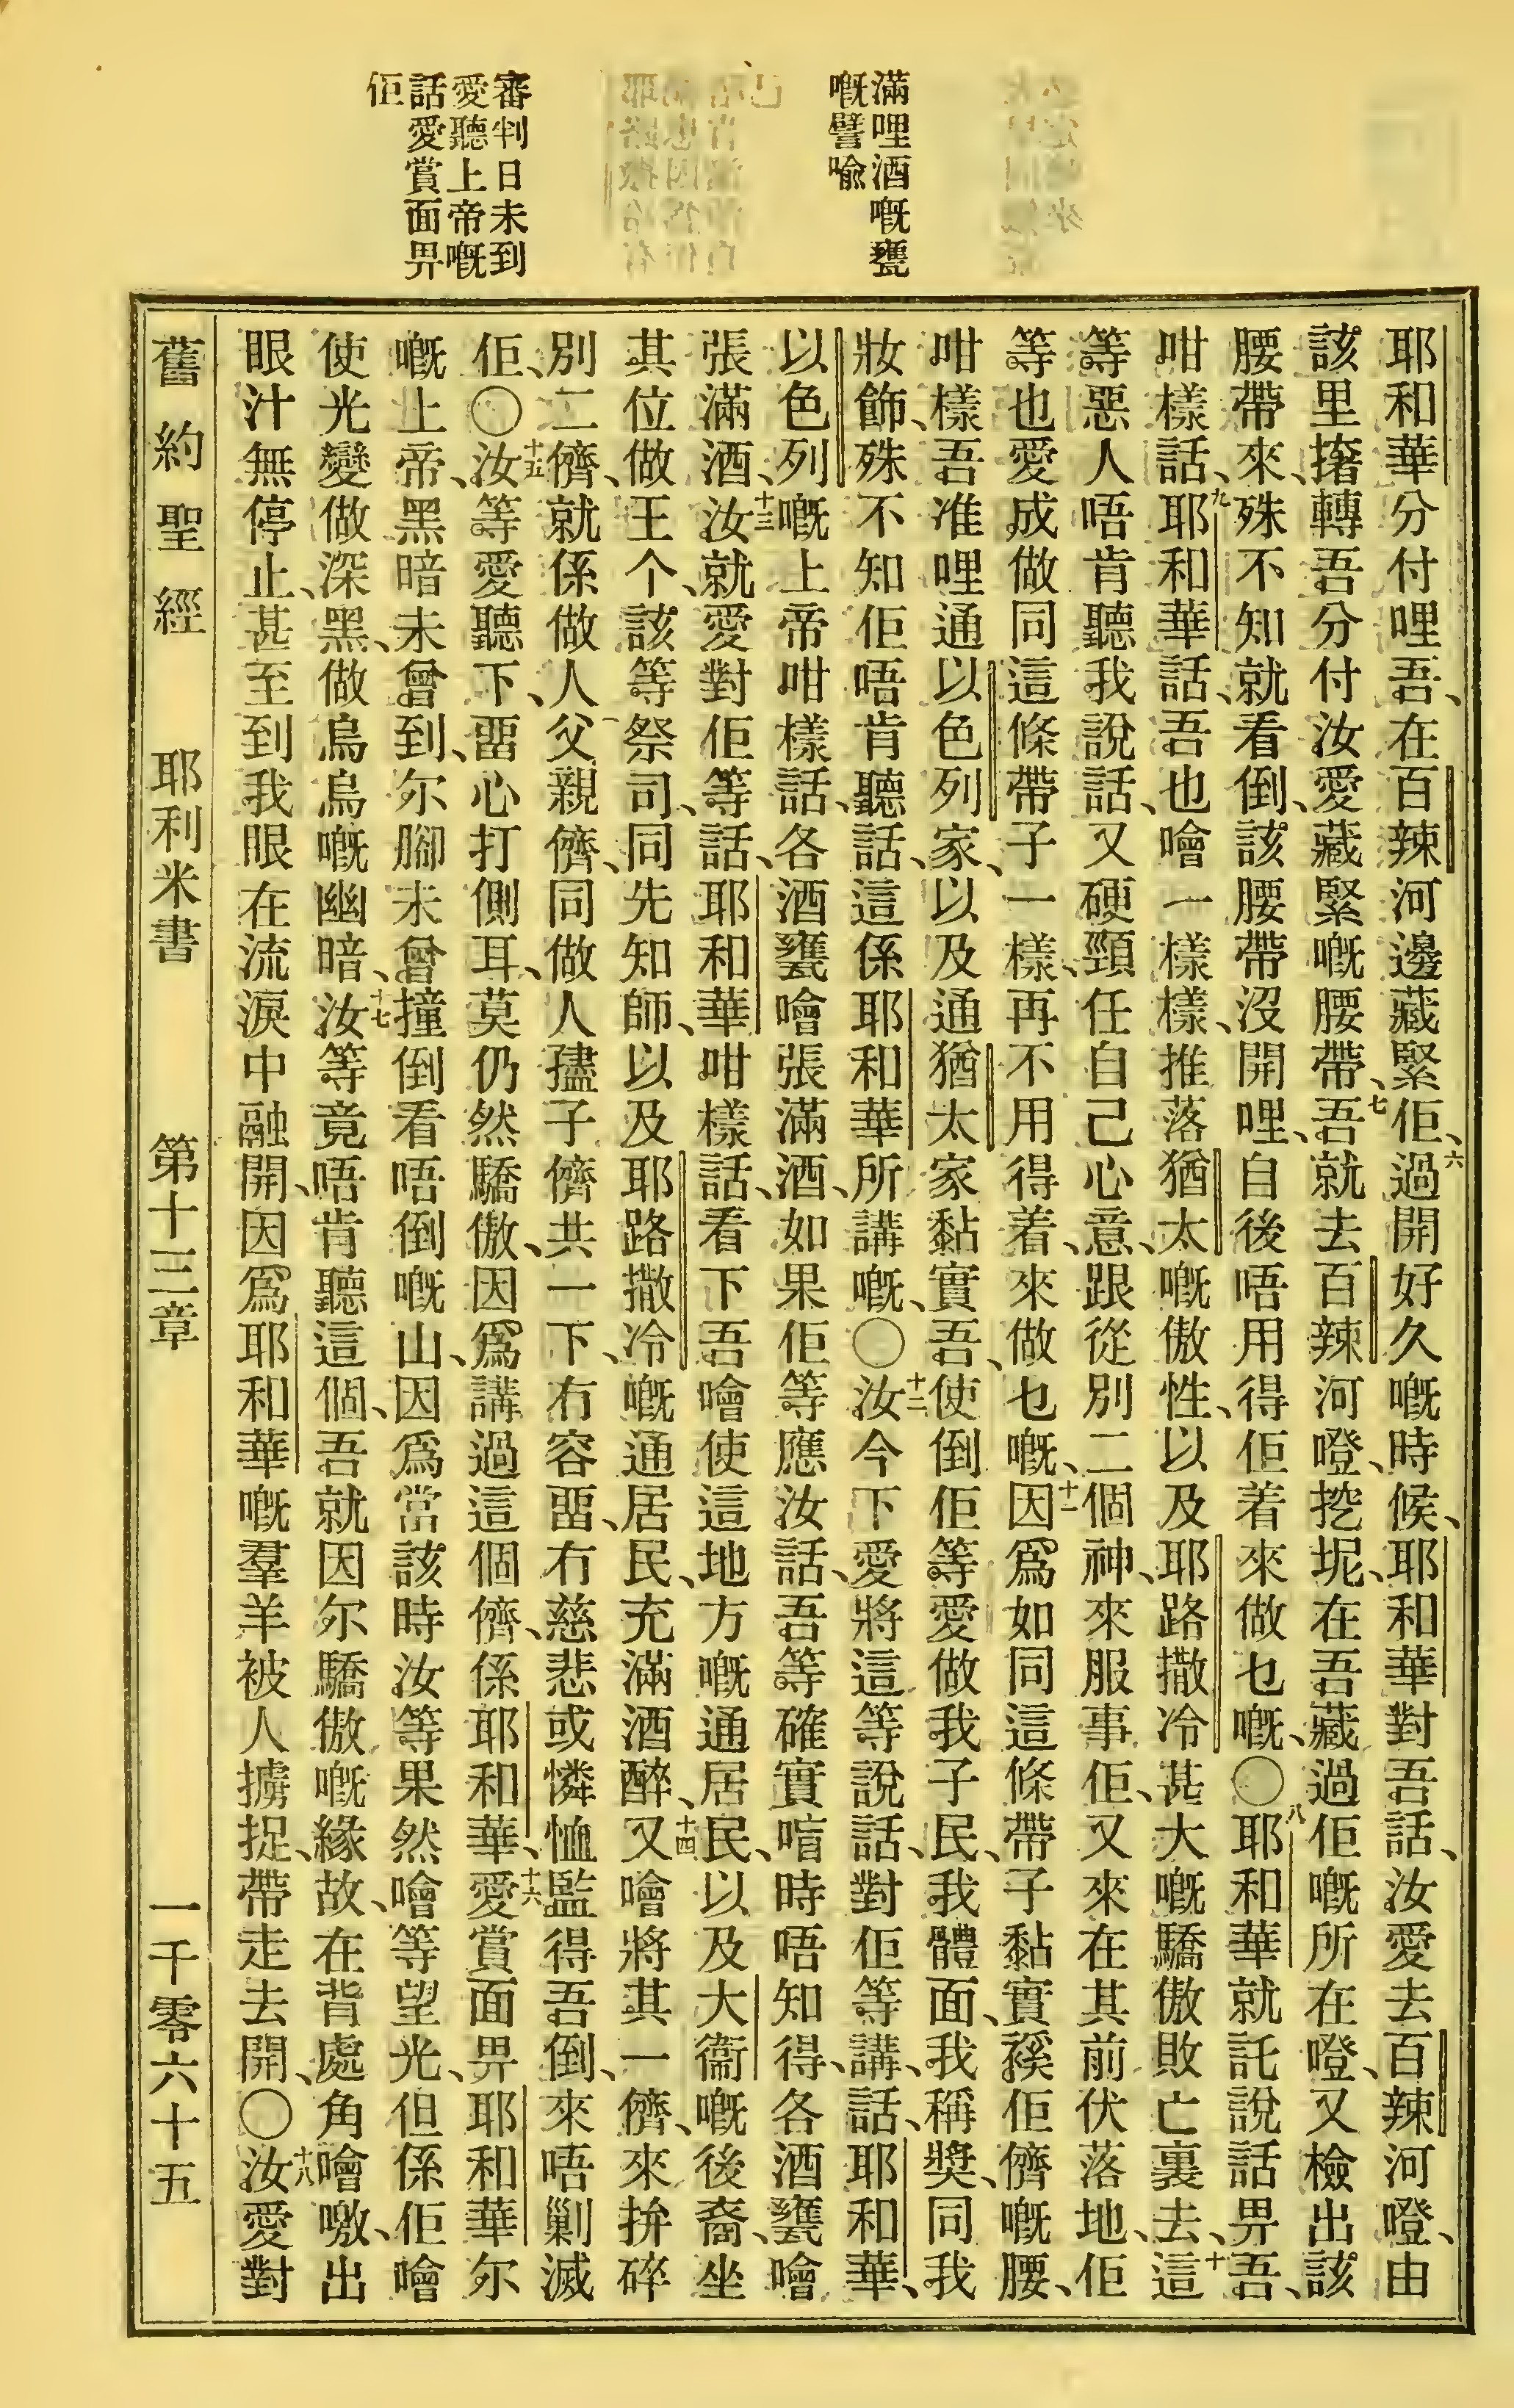 滿哩酒嘅甕
嘅譬喻
審判日未到
愛聽上帝嘅
話愛賞面畀
佢
耶和華分付哩吾、在百辣河邊藏緊佢、六過開好久嘅時候、耶和華對吾話、汝愛去百辣河嶝、由
該里搿轉吾分付汝愛藏緊嘅腰帶、七吾就去百辣河嶝、挖坭、在吾藏過佢嘅所在嶝、又檢出該
腰帶來、殊不知就看倒、該腰帶沒開哩、自後唔用得佢着來做乜嘅、〇八耶和華就託說話畀吾、
咁樣話、九耶和華話、吾也噲一樣樣、推落猶太嘅傲性、以及耶路撒冷甚大嘅驕傲敗亡裏去、十這
等惡人唔肯聽我說話、又硬頸任自己心意、跟從別二個神、來服事佢、又來在其前伏落地、佢
等也愛成做同這條帶子一樣、再不用得着、來做乜嘅、十一因爲如同這條帶子黏實徯佢儕嘅腰、
咁樣吾准哩通以色列家、以及通猶太家黏實吾、使倒佢等愛做我子民、我體面、我稱獎、同我
妝飾、殊不知佢唔肯聽話、這係耶和華所講嘅、〇十二汝今下愛將這等說話、對佢等講、話、耶和華、
以色列嘅上帝咁樣話、各酒甕噲張滿酒、如果佢等應汝話、吾等確實喑時唔知得、各酒甕噲
張滿酒、十三汝就愛對佢等話、耶和華咁樣話、看下吾噲使這地方嘅通居民、以及大衞嘅後裔、坐
其位做王个、該等祭司、同先知師、以及耶路撒冷嘅通居民、充滿酒醉、十四又噲將其一儕、來拚碎
別二儕、就係做人父親儕、同做人孻子儕共一下、冇容畱、冇慈悲或憐恤監得吾倒、來唔剿滅
佢、〇十五汝等愛聽下、畱心打側耳、莫仍然驕傲、因爲講過這個儕、係耶和華、十六愛賞面畀耶和華尔
嘅上帝、黑暗未曾到、尔腳未曾撞倒看唔倒嘅山、因爲當該時汝等果然噲等望光、但係佢噲
使光變做深黑、做烏烏嘅幽暗、十七汝等竟唔肯聽這個、吾就因尔驕傲嘅緣故、在背處角噲噭、出
眼汁無停止、甚至到我眼在流淚中融開、因爲耶和華嘅羣羊被人擄捉、帶走去開、〇十八汝愛對
舊約聖經　耶利米書　第十三章　一千零六十五